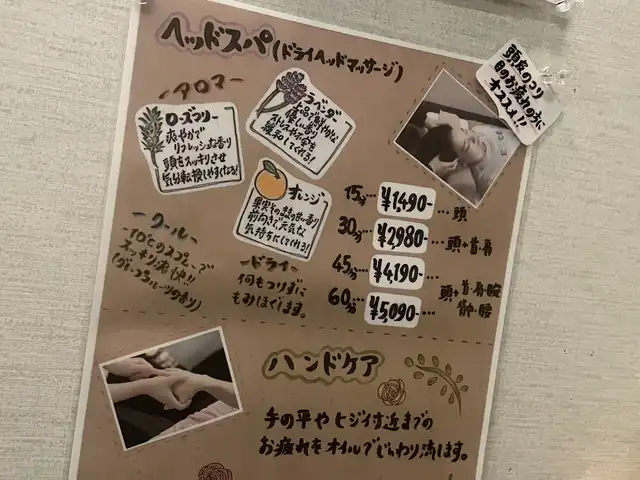 ヘッドスパ(ドライヘッドマッサージ)
頭皮のコリ
目のお疲れの方に
オススメ!!
-アロマ-
ローズマリー
爽やかで
リフレッシュな香り
頭をスッキリさせ
気分転換しやすくなる!
ラベンダー
上品で鮮やかな
優しい香り
緩和してくれる!
オレンジ
果実そのままの甘い香り
前向きで元気な
気持ちにしてくれる!
-クール-
-10℃のスプレーで
スッキリ爽快!!
(グレープフルーツの香り)
-ドライ-
何もつけずに
もみほぐします。
15分…¥1490-…頭
30分…¥2980-…頭+首・肩
45分…¥4,190-…
60分…¥5,090-…
頭+首・肩・腕
背中・腰
ハンドケア
手の平やヒジ付近までの
お疲れをオイルでじんわり流します。